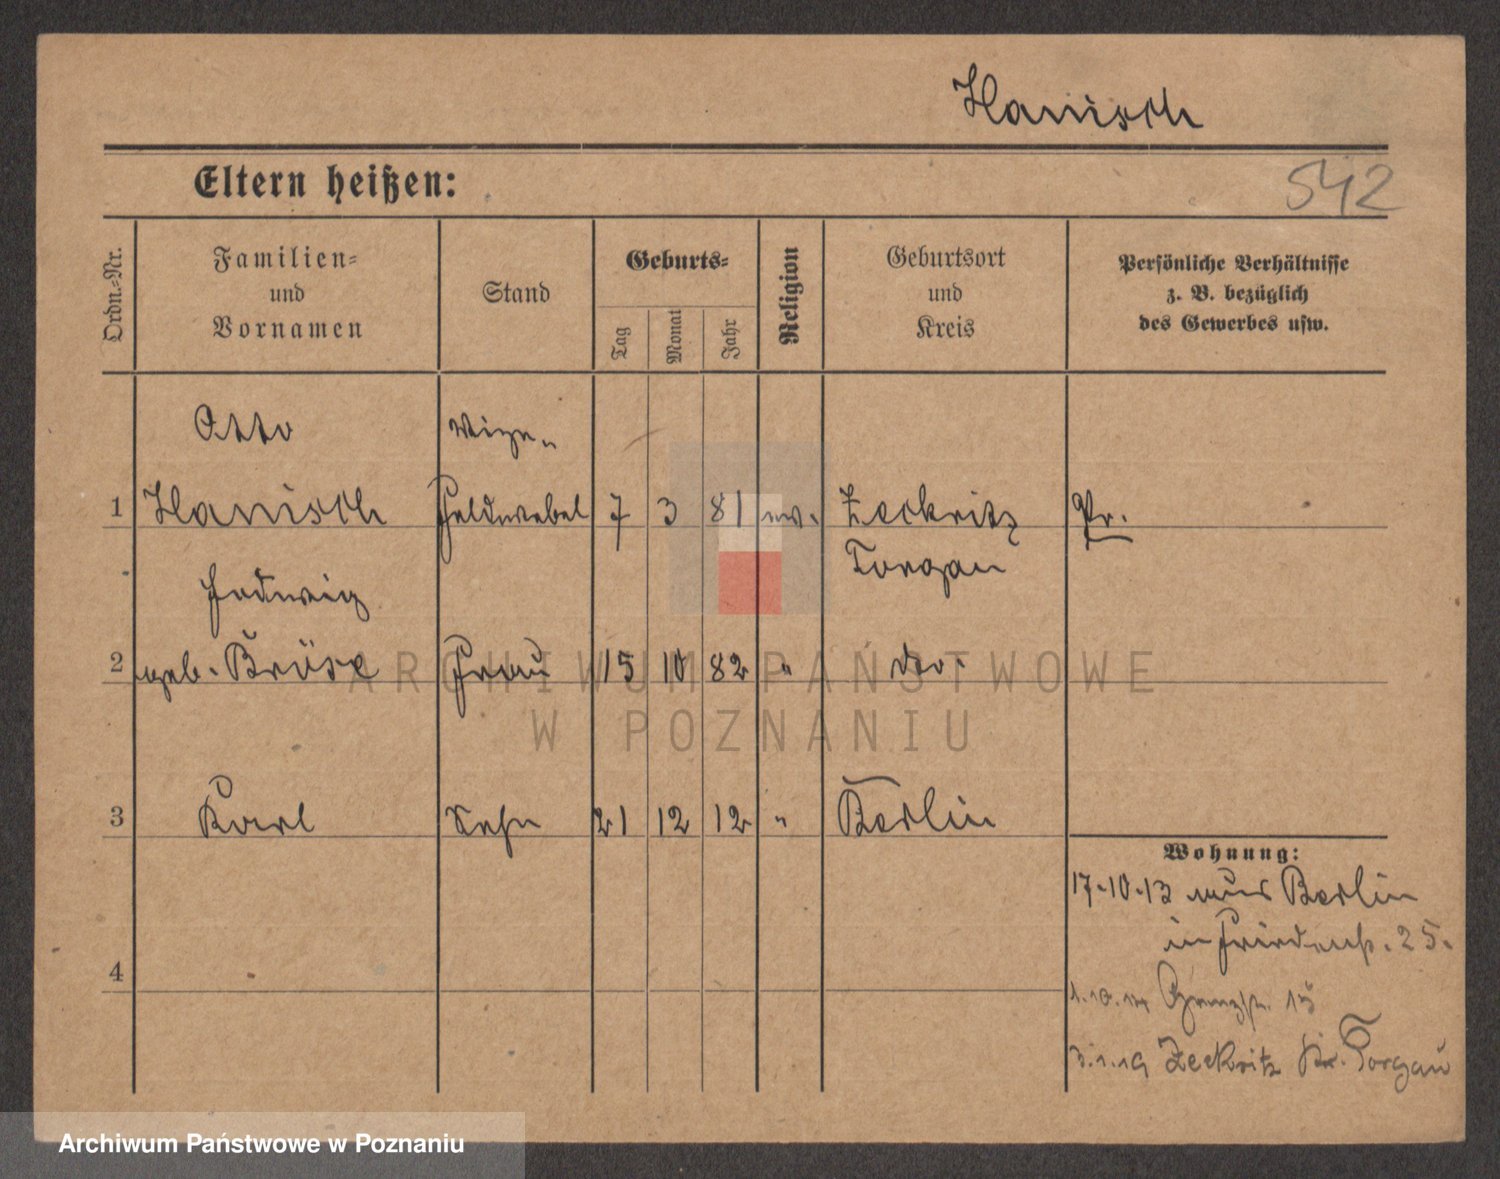 Hanisch
Eltern heißen:
542
Ordn.-Nr.
Familien-
und
Vornamen
Stand
Geburts-
Tag
Monat
Jahr
Religion
Geburtsort
und
Kreis
Persönliche Verhältnisse
z. B. bezüglich
des Gewerbes usw.
Otto Vize-
1 Hanisch Feldwebel 7 3 81 ev. Zeckritz Pr.
Torgau
Hedwig
2 geb. Bröse Frau 15 10 82 " do.
3 Karl Sohn 21 12 12 " Berlin
Wohnung:
17.10.13 aus Berlin
in Friedenstr. 25.
4
1.10. Grenzstr. 15
3.1.19 Zeckritz Kr. Torgau
ARCHIWUM PAŃSTWOWE
W POZNANIU
Archiwum Państwowe w Poznaniu